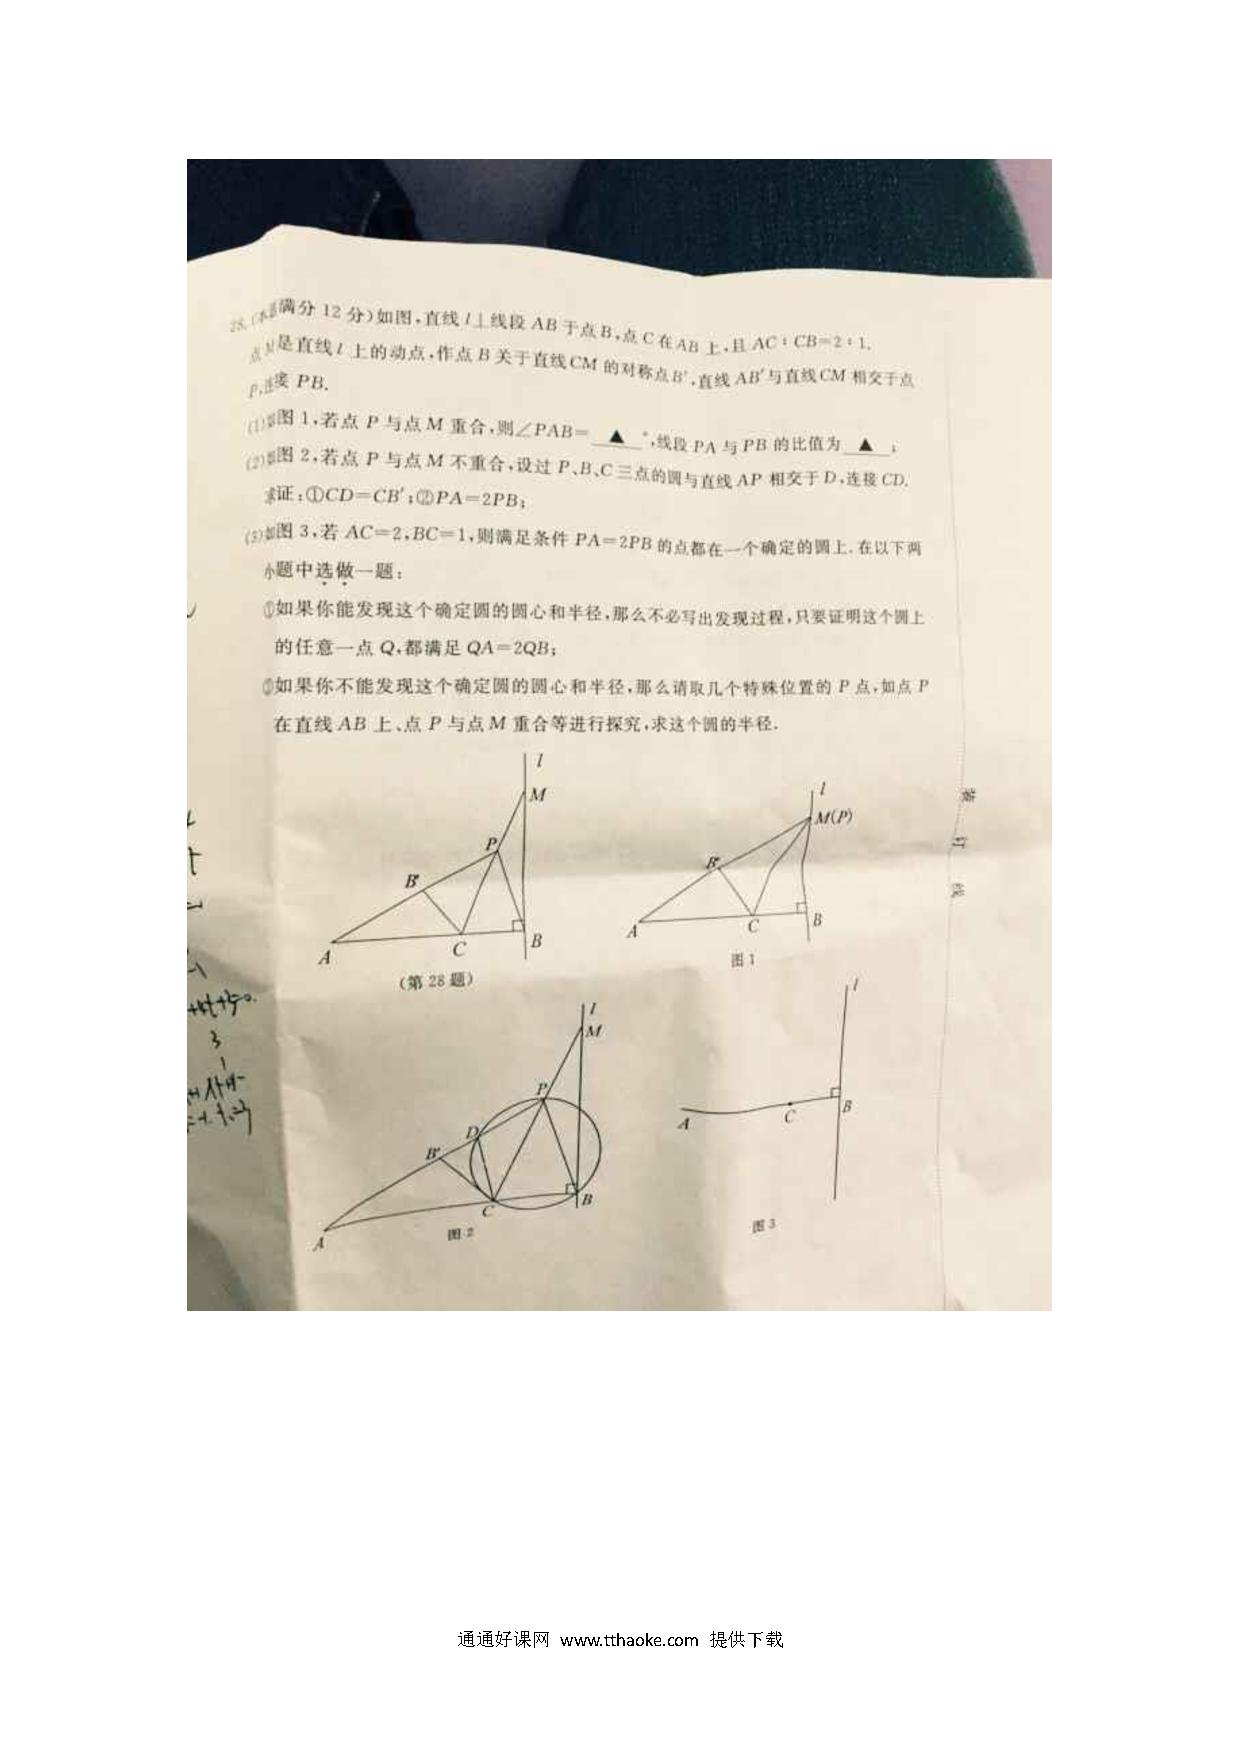 28.(本题满分 12 分)如图,直线 l⊥线段 AB 于点 B,点 C 在 AB 上,且 AC∶CB=2∶1.
点 M 是直线 l 上的动点,作点 B 关于直线 CM 的对称点 B′,直线 AB′与直线 CM 相交于点
P,连接 PB.
(1)如图 1,若点 P 与点 M 重合,则∠PAB=▲°,线段 PA 与 PB 的比值为▲;
(2)如图 2,若点 P 与点 M 不重合,设过 P、B、C 三点的圆与直线 AP 相交于 D,连接 CD.
求证:①CD=CB′;②PA=2PB;
(3)如图 3,若 AC=2,BC=1,则满足条件 PA=2PB 的点都在一个确定的圆上.在以下两
小题中选做一题:
①如果你能发现这个确定圆的圆心和半径,那么不必写出发现过程,只要证明这个圆上
的任意一点 Q,都满足 QA=2QB;
②如果你不能发现这个确定圆的圆心和半径,那么请取几个特殊位置的 P 点,如点 P
在直线 AB 上、点 P 与点 M 重合等进行探究,求这个圆的半径.
l
M
P
B′
A
C
B
(第 28 题)
l
M(P)
B′
A
C
B
图 1
l
M
P
D
B′
A
C
B
图 2
l
A
C
B
图 3
装
订
线
3
1
通通好课网 www.tthaoke.com 提供下载